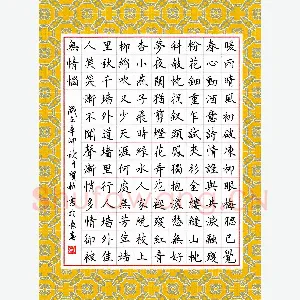 暖雨晴風初破凍柳眼梅腮已覺
春心動酒意詩情誰與共淚融殘
粉花鈿重乍試夾衫金縷縫山枕
斜欹枕損釵頭鳳獨抱濃愁無好
夢夜闌猶剪燈花弄花褪殘紅青
杏小燕子飛時綠水人家繞枝上
柳綿吹又少天涯何處無芳草墻
里秋千墻外道墻外行人墻里佳
人笑笑漸不聞聲漸悄多情卻被
無情惱